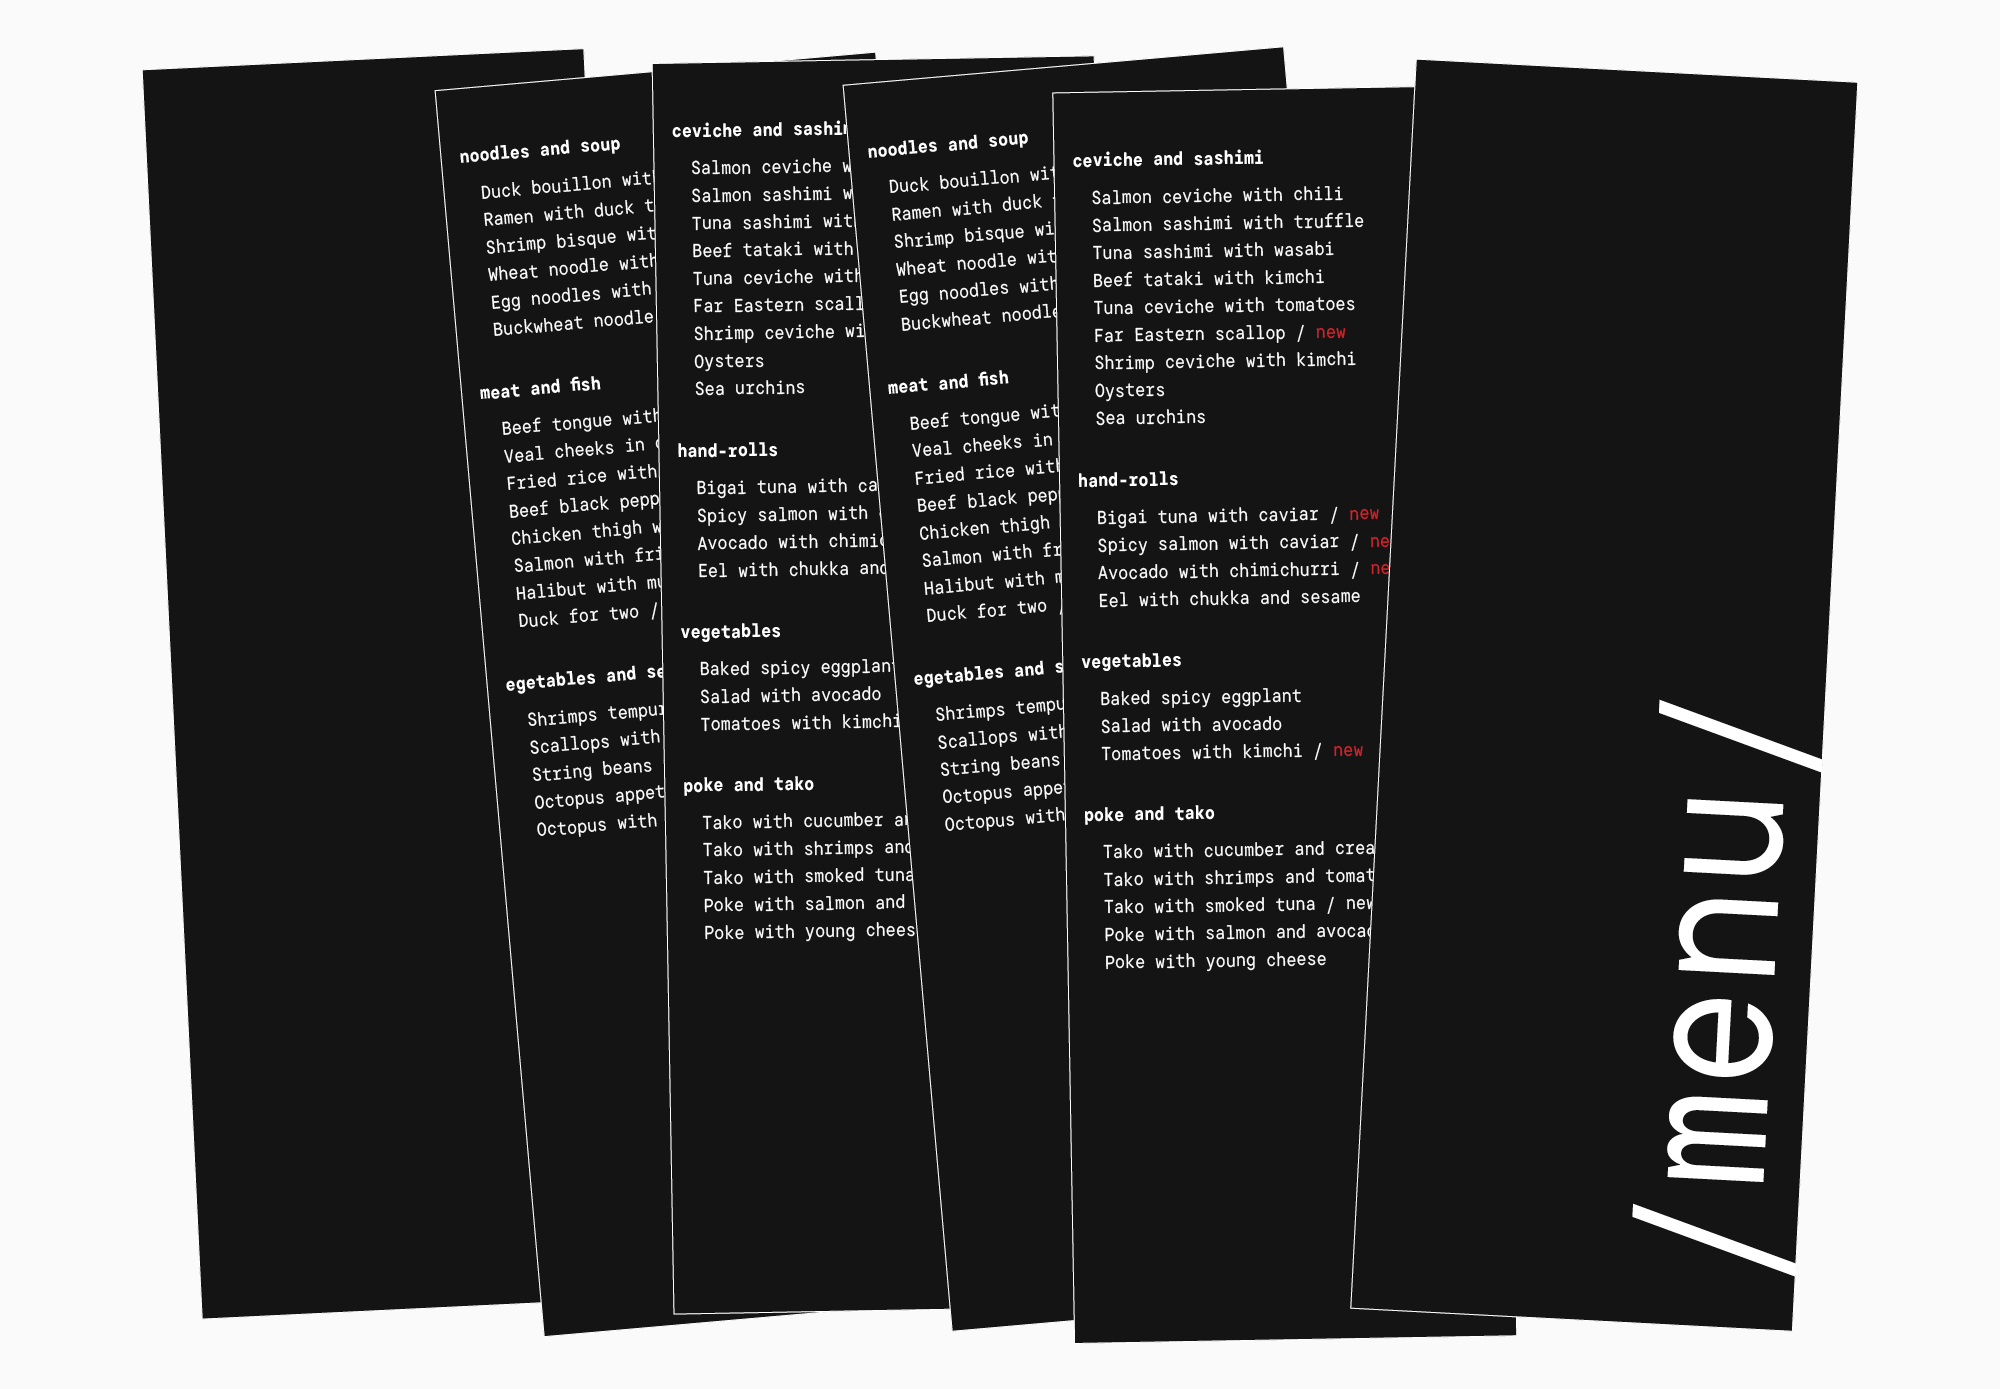 noodles and soup
Duck bouillon
Ramen with duck
Shrimp bisque
Wheat noodle with
Egg noodles with
Buckwheat noodle
meat and fish
Beef tongue with
Veal cheeks in
Fried rice with
Beef black
Chicken thigh
Salmon with
Halibut with
Duck for two /
egetables and
Shrimps
Scallops with
String beans
Octopus
Octopus with
ceviche and
Salmon ceviche
Salmon sashimi
Tuna sashimi
Beef tataki with
Tuna ceviche with
Far Eastern
Shrimp ceviche
Oysters
Sea urchins
hand-rolls
Bigai tuna with
Spicy salmon with
Avocado with
Eel with chukka
vegetables
Baked spicy eggplant
Salad with avocado
Tomatoes with kimchi
poke and tako
Tako with cucumber
Tako with shrimps
Tako with smoked tuna
Poke with salmon and
Poke with young
noodles and soup
Duck bouillon
Ramen with duck
Shrimp bisque
Wheat noodle
Egg noodles with
Buckwheat
meat and fish
Beef tongue
Veal cheeks in
Fried rice with
Beef black
Chicken thigh
Salmon with
Halibut with
Duck for two
egetables and
Shrimps
Scallops with
String beans
Octopus
Octopus with
ceviche and sashimi
Salmon ceviche with chili
Salmon sashimi with truffle
Tuna sashimi with wasabi
Beef tataki with kimchi
Tuna ceviche with tomatoes
Far Eastern scallop / new
Shrimp ceviche with kimchi
Oysters
Sea urchins
hand-rolls
Bigai tuna with caviar / new
Spicy salmon with caviar / ne
Avocado with chimichurri / ne
Eel with chukka and sesame
vegetables
Baked spicy eggplant
Salad with avocado
Tomatoes with kimchi / new
poke and tako
Tako with cucumber and
Tako with shrimps and
Tako with smoked tuna / new
Poke with salmon and
Poke with young cheese
/menu/